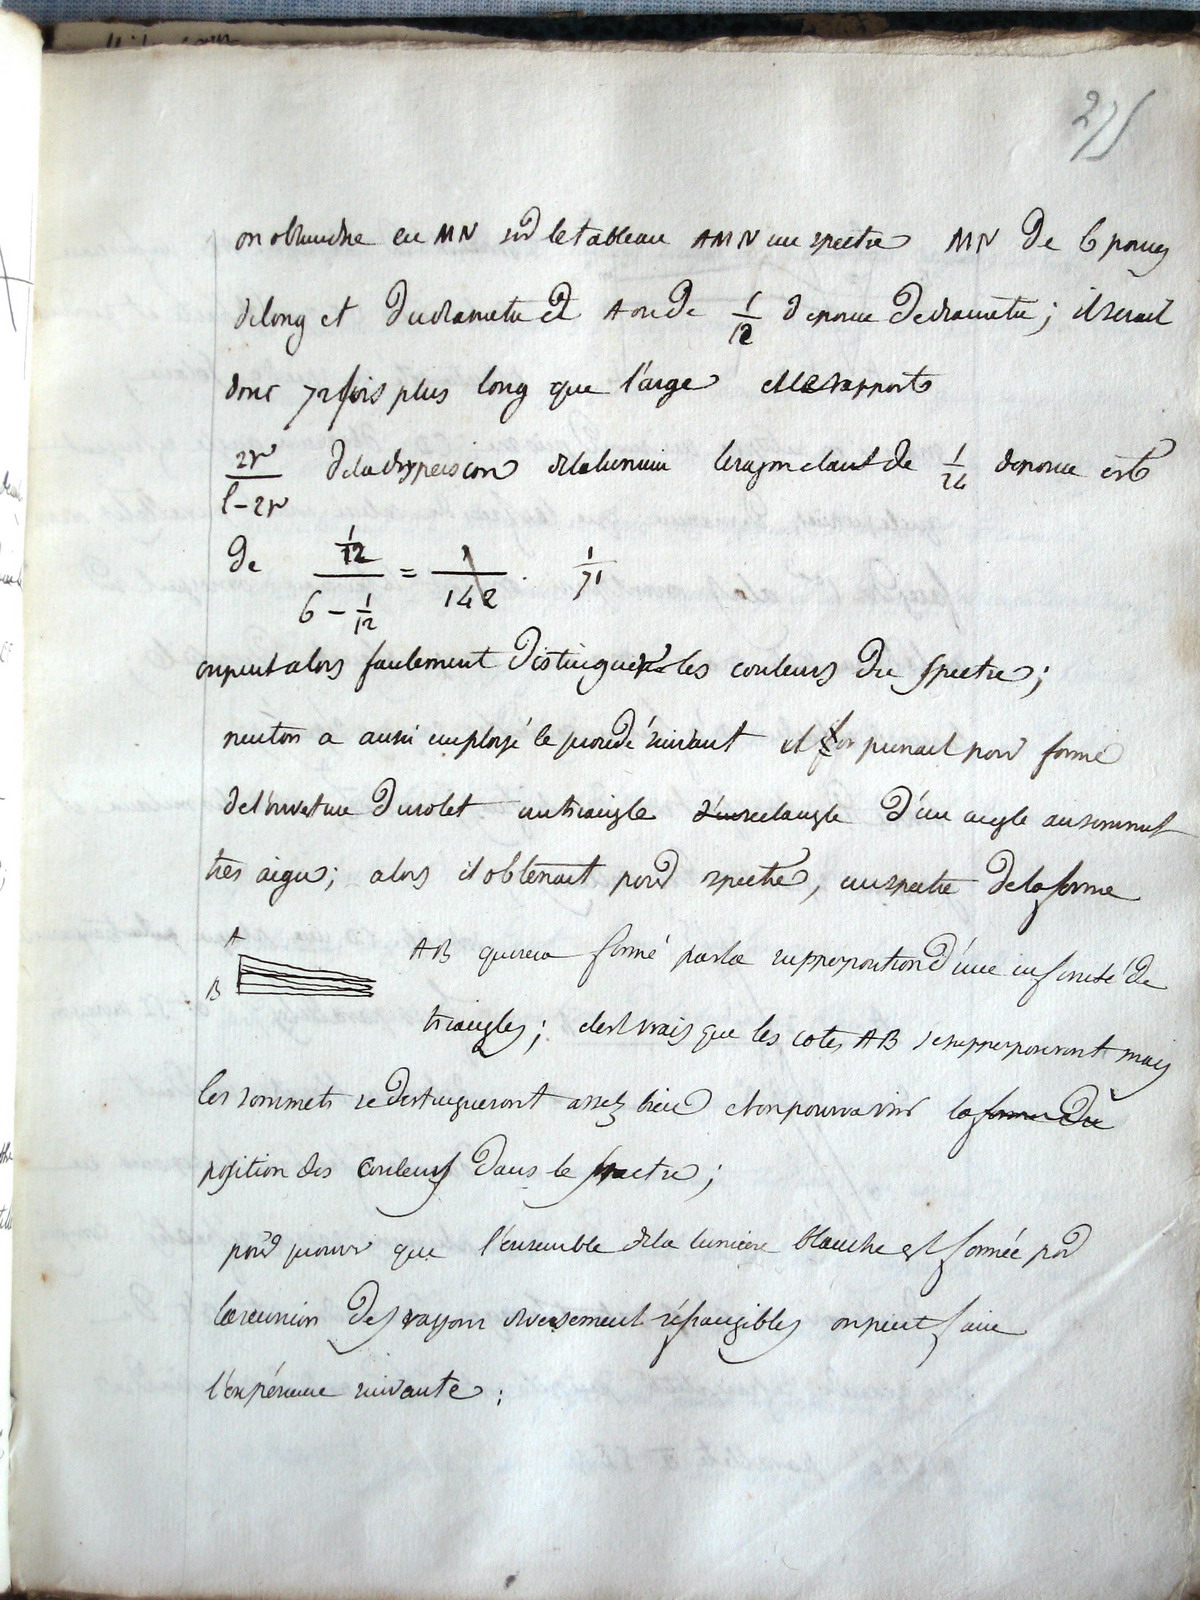 275
on obtiendra en MN sur le tableau AMN un spectre MN de 6 pouces
de long et du diametre de 1/12 de pouce de diametre; il serait
donc 72 fois plus long que large et le rapport
2r/(l-2r) de la dispersion de la lumiere le rayon etant de 1/24 de pouce est
de (1/12)/(6 - 1/12) = 1/142 . 1/71
on peut alors facilement distinguer les couleurs du spectre;
neuton a aussi employé le procédé suivant il prenait pour forme
de l'ouverture du volet un triangle rectangle d'un angle au sommet
tres aigu; alors il obtenait pour spectre, un spectre de la forme
A
B
AB qui sera formé par la supperposition d'une infinité de
triangles; c'est vrais que les cotes AB se supperposeront mais
les sommets se distingueront assez bien et on pourra voir la forme du
position des couleurs dans le spectre;
pour prouver que l'ensemble de la lumiere blanche est formée par
la reunion des rayons diversement réfrangibles on peut faire
l'expérience suivante: